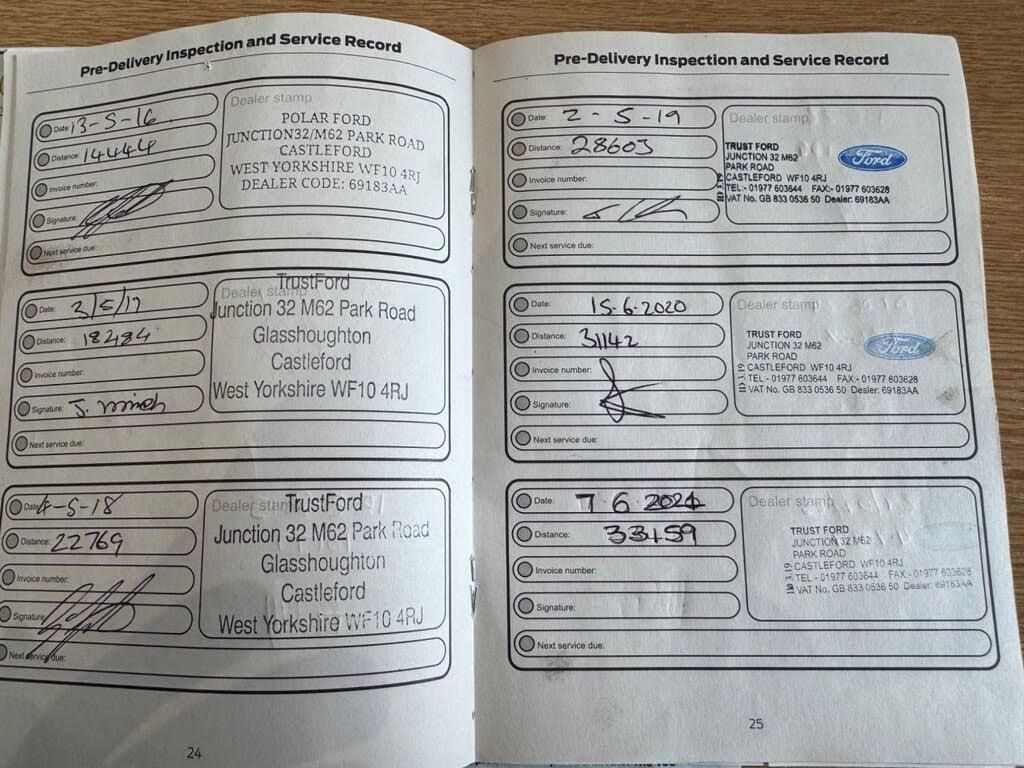 Pre-Delivery Inspection and Service Record
Date: 13-5-16
Distance: 14444
Invoice number:
Signature:
Next service due:
Dealer stamp
POLAR FORD
JUNCTION32/M62 PARK ROAD
CASTLEFORD
WEST YORKSHIRE WF10 4RJ
DEALER CODE: 69183AA
Date: 2/5/17
Distance: 18284
Invoice number:
Signature:
Next service due:
Dealer stamp
TrustFord
Junction 32 M62 Park Road
Glasshoughton
Castleford
West Yorkshire WF10 4RJ
Date: 4-5-18
Distance: 22769
Invoice number:
Signature:
Next service due:
Dealer stamp
TrustFord
Junction 32 M62 Park Road
Glasshoughton
Castleford
West Yorkshire WF10 4RJ
24
Pre-Delivery Inspection and Service Record
Date: 2-5-19
Distance: 28603
Invoice number:
Signature:
Next service due:
Dealer stamp
TRUST FORD
JUNCTION 32 M62
PARK ROAD
CASTLEFORD WF10 4RJ
TEL:- 01977 603644 FAX:- 01977 603628
VAT No. GB 833 0536 50 Dealer: 69183AA
Ford
Date: 15.6.2020
Distance: 31142
Invoice number:
Signature:
Next service due:
Dealer stamp
TRUST FORD
JUNCTION 32 M62
PARK ROAD
CASTLEFORD WF10 4RJ
TEL:- 01977 603644 FAX:- 01977 603628
VAT No. GB 833 0536 50 Dealer: 69183AA
Ford
Date: 7.6.2021
Distance: 33159
Invoice number:
Signature:
Next service due:
Dealer stamp
TRUST FORD
JUNCTION 32 M62
PARK ROAD
CASTLEFORD WF10 4RJ
TEL:- 01977 603644 FAX:- 01977 603628
VAT No. GB 833 0536 50 Dealer: 69183AA
25